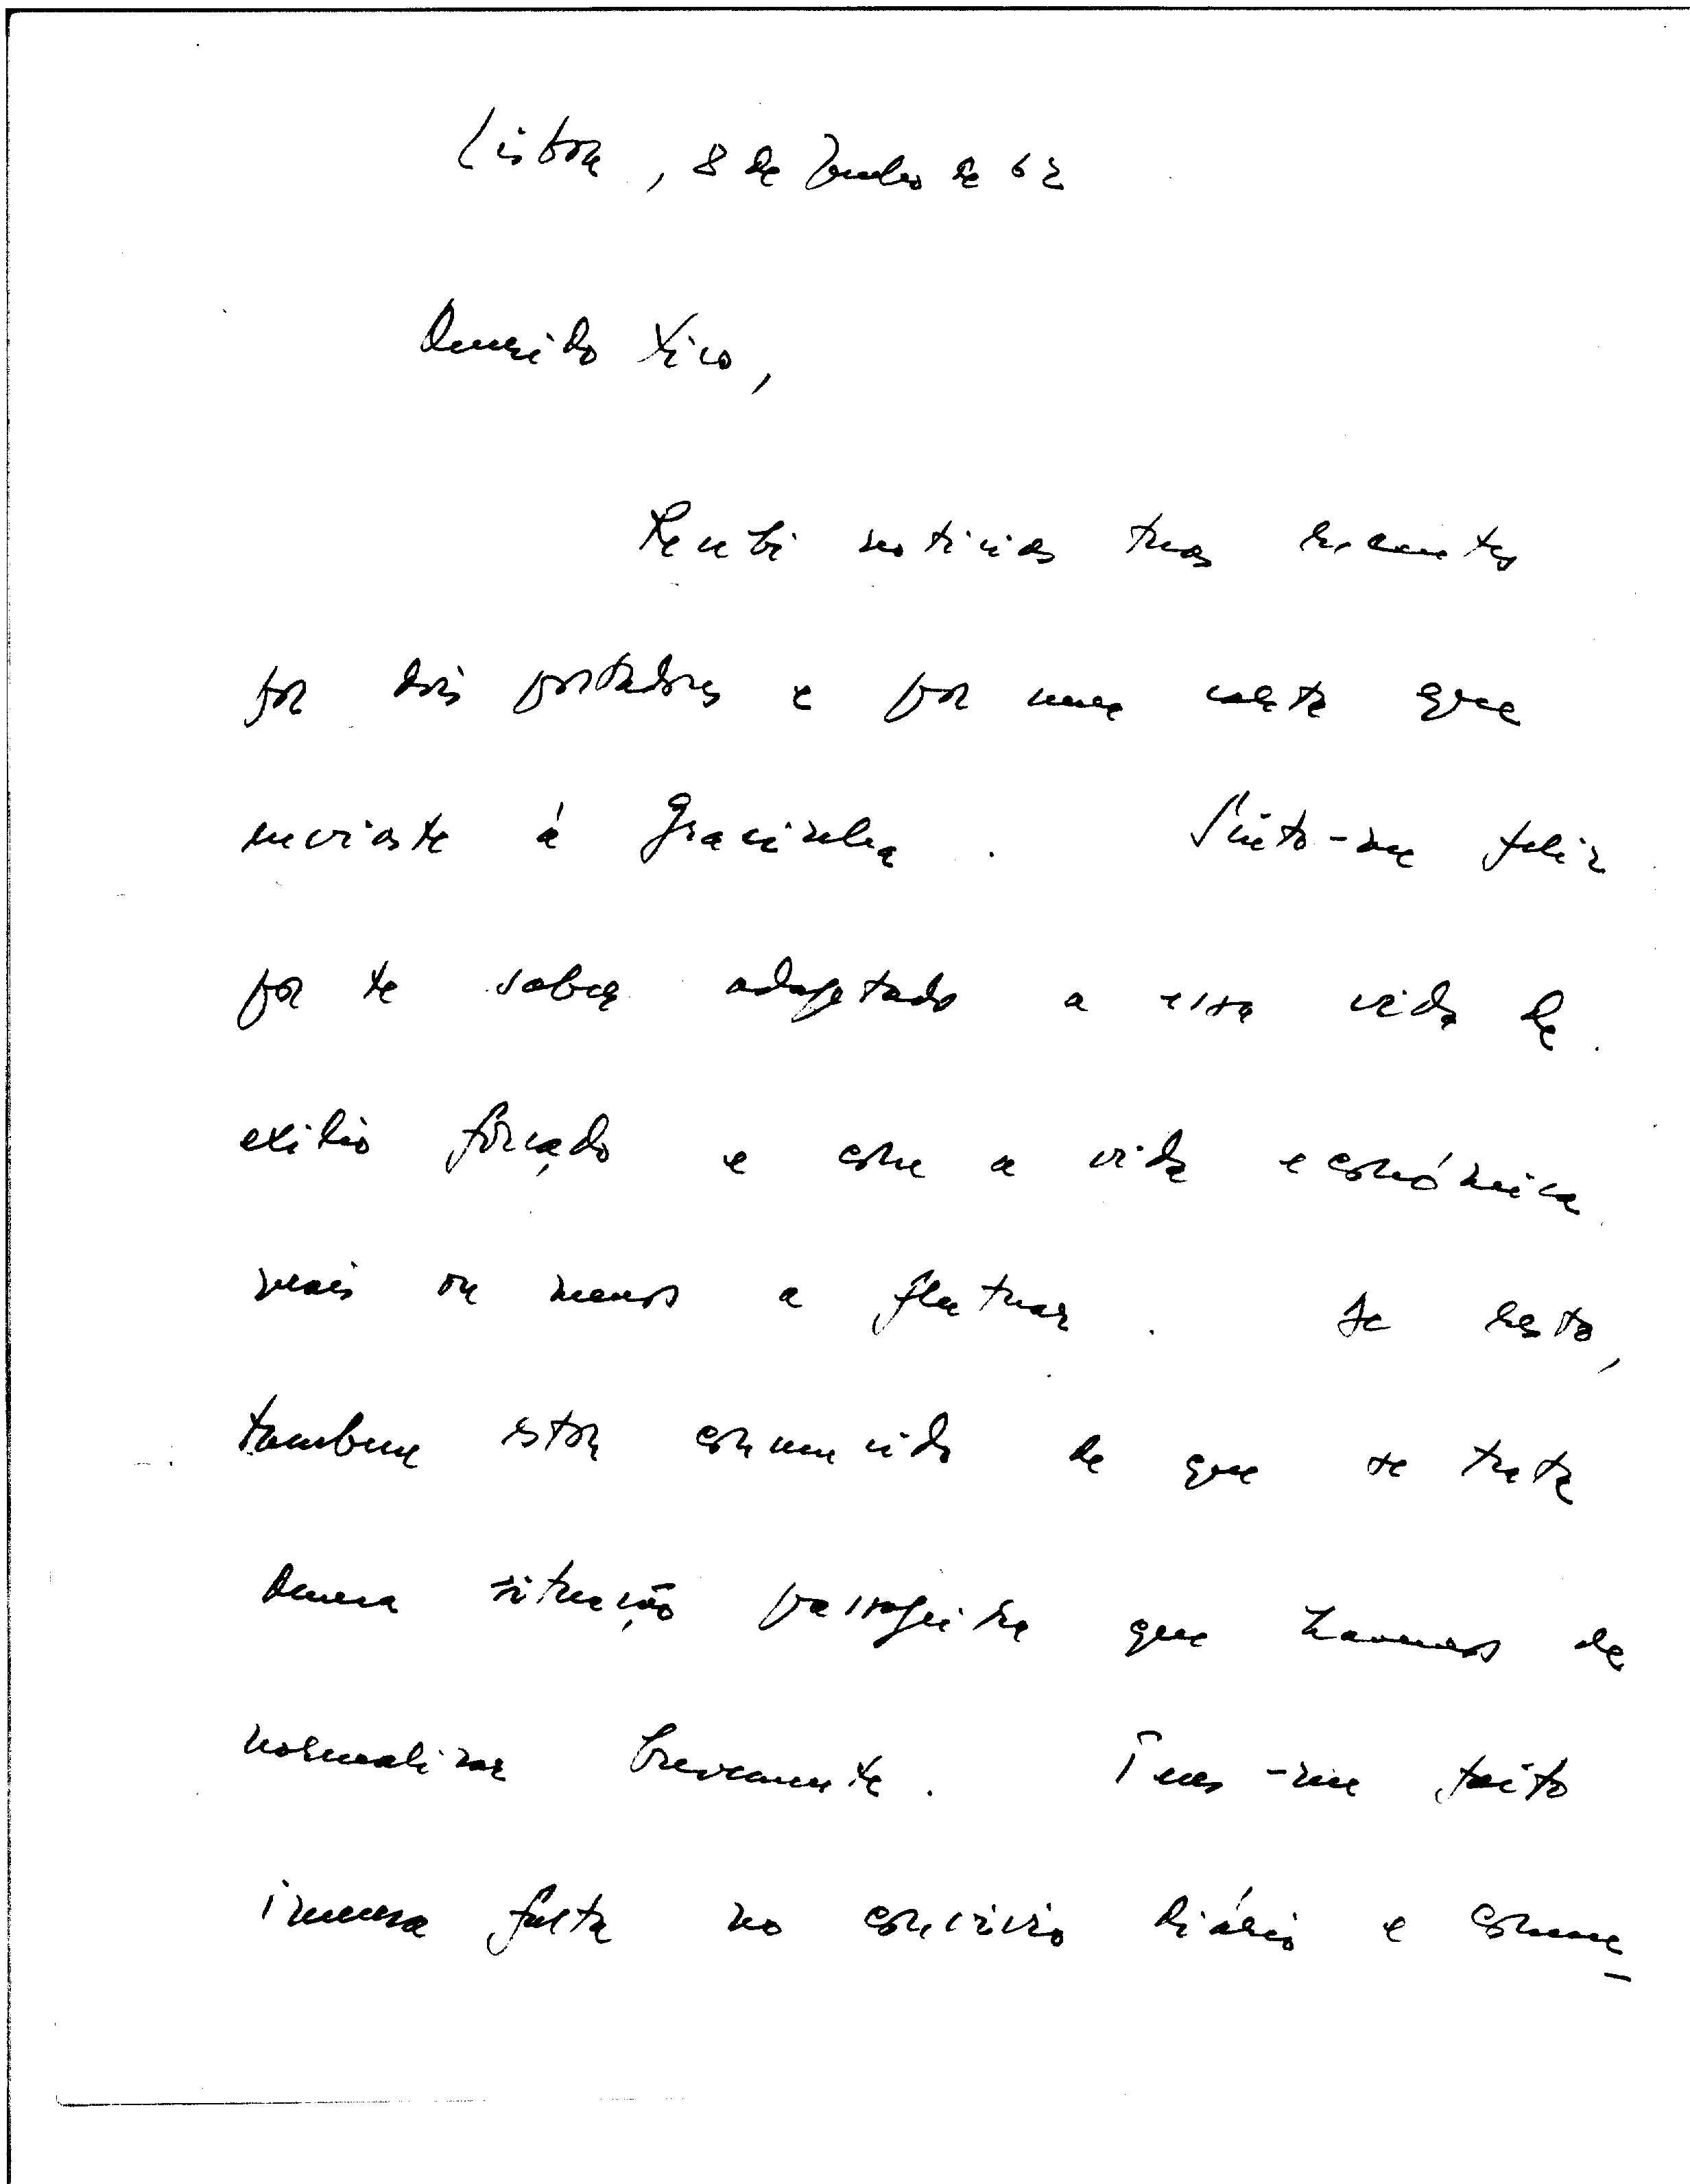 Lisboa, 8 de Junho de 62
Querido Xico,
Recebi noticias tuas recentes
por dois portadores e por uma carta que
enviaste á Gracinha. Sinto-me feliz
por te saber adaptado a essa vida de
exilio forçado e com a vida económica
mais ou menos a flutuar. De resto,
tambem estou convencido de que se trata
duma situação passageira que havemos de
normalizar brevemente. Tens-me feito
imensa falta no convivio diário e